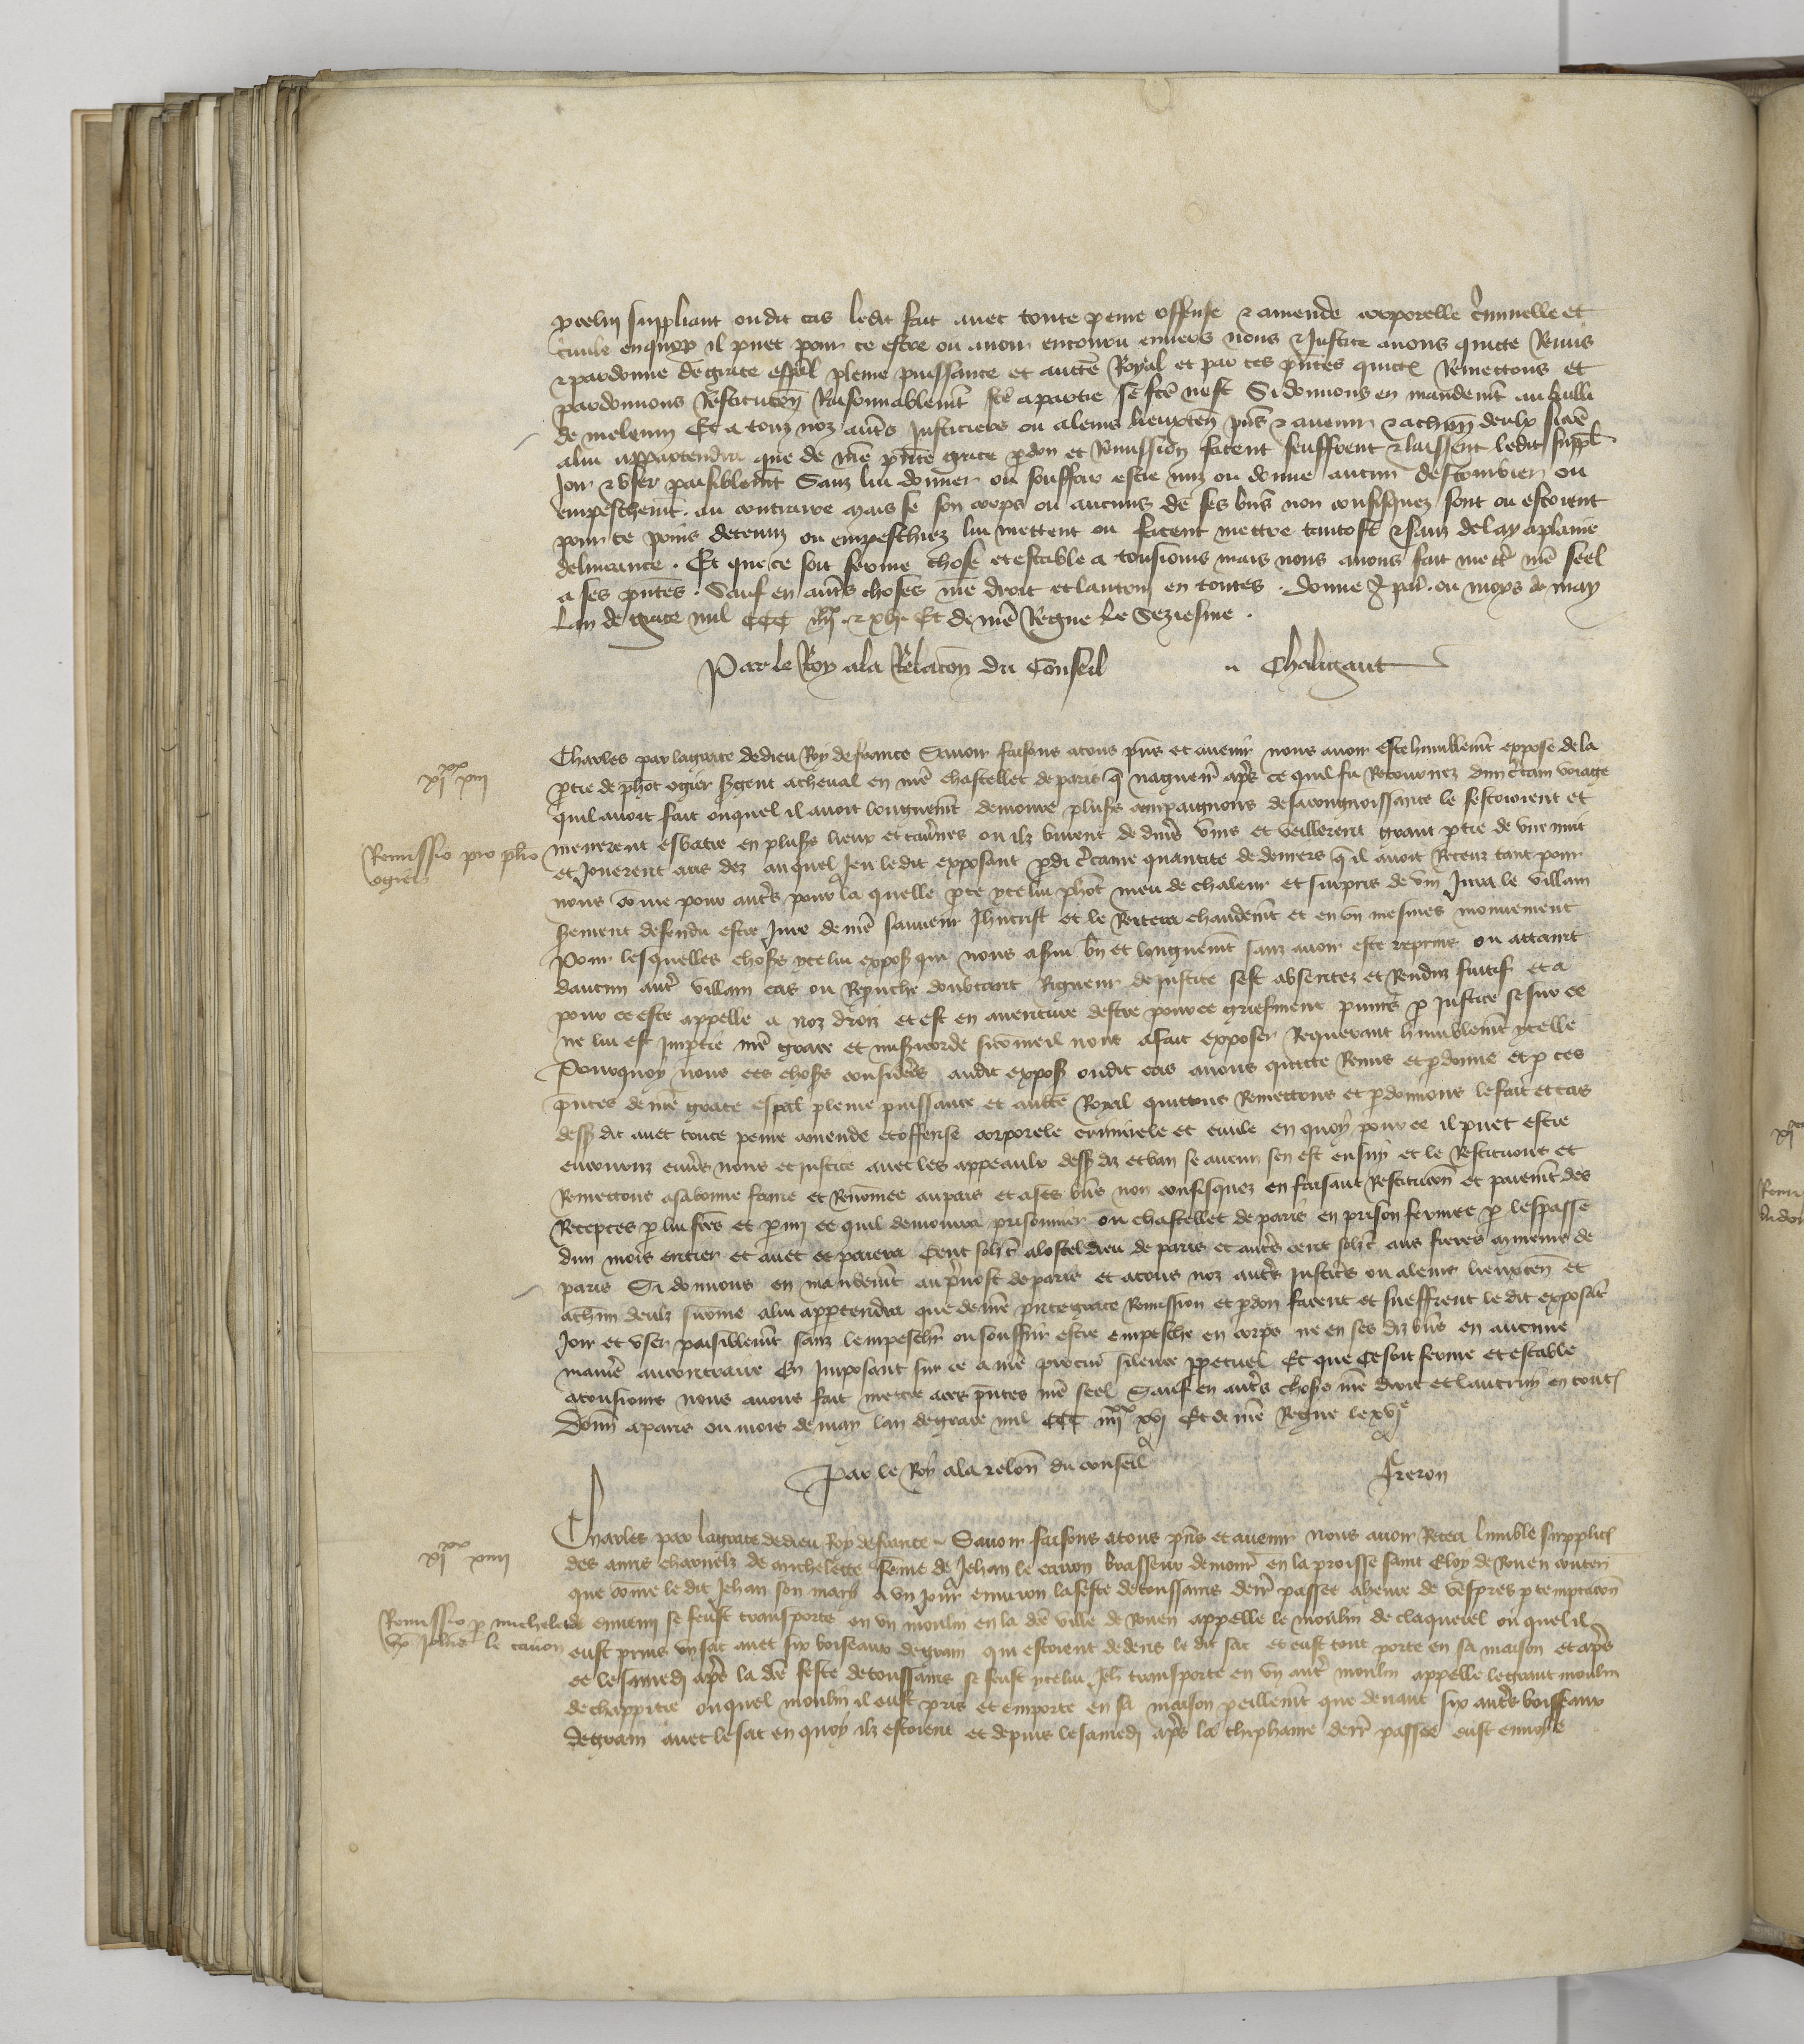 suppliant oudit cas ledit fait avec toute peine offense & amende corporelle criminelle et
civile en quoy il puet pour ce estre ou avoir encouru envers nous & justice avons quicte Remis
& pardonne de grace espal pleine puissance et aucte Royal et par ces pntes quictons Remettons et
pardonnons Restitucon Raisonnablemt fte a partie se fte nest Si donnons en mandemt au bailli
de meleun Et a touz noz autrs justiciers ou a leurs lieuxten pns & avenir & a chun deulx si coe
a lui appartendra que de nre pnte grace pdon et Remission facent seuffrent & laissent ledit suppl
joir & user paisiblemt Sanz lui donner ou souffrir estre mis ou donne aucun destourbier ou
empeschemt au contraire mais se son corps ou aucuns de ses bns non confisquez sont ou estoient
pour ce prins detenuz ou empeschiez lui mettent ou facent mettre tantost & sanz delay a plaine
delivrance . Et que ce soit ferme chose et estable a tousjours mais nous avons fait mettre nre seel
a ses pntes . Sauf en autrs choses nre droit et lautruy en toutes . donne a par ou moys de may
Lan de grace mil CCC iiii xx & xvi Et de nre Regne Le Seziesme .
Par le Roy a la Relacon du Conseil Chaligaut
Charles par la grace de dieu Roy de france Savoir faisons a tous pns et avenir nous avoir este humblemt expose de la
ptie de phot ogier sergent a cheval en nre chastellet de paris q naguere aprs ce quil fu Retournez dun certain voiage
xi xx xiii
quil avoit fait ouquel il avoit longuemt demoure plusrs compaignons de sa congnoissance le festoioient et
menerent esbatre en plusrs lieux et tavernes ou ilz burent de divrs vins et veillerent grant ptie de une nuit
Remissio pro pho
ogier
et jouerent aus dez auquel jeu ledit exposant pdi certaine quantite de deniers q il avoit Receuz tant pour
nous come pour autrs pour la quelle pte ycelui phot meu de chaleur et surpris de vin jura le villain
serement defendu estre jure de nre sauveur jhucrist et le Reitera chaudemt et en un mesmes mouvement
Pour lesquelles choses ycelui expos qui nous a servi bn et longuemt sanz avoir este reprins ou attaint
daucun autr villain cas ou Reprouche doubtant Rigueur de justice sest absentez et Rendu fuitif et a
pour ce este appelle a noz droiz et est en aventure destre pour ce griefment puniz p justice se sur ce
ne lui est impartie nre grace et misericorde si come il nous a fait exposer Requerant humblemt ycelle
Pourquoy nous ces choses considers audit expos oudit cas avons quicte Remis et pdonne et p ces
pntes de nre grace espal pleine puissance et aucte Royal quictons Remettons et pdonnons le fait et cas
dessus dit avec toute peine amende et offense corporele criminele et civile en quoy pour ce il puet estre
encouruz envrs nous et justice avec les appeaulx dessus diz et ban se aucun sen est ensuy et le Restituons et
Remettons a sa bonne fame et Renomee au pais et a ses bns non confisquez en faisant Restitucon et paiemt des
Receptes p lui ftes et p mi ce quil demourra prisonnier ou chastellet de paris en prison fermee p lespasse
dun mois entier et avec ce paiera Cent solz t a lostel dieu de paris et autrs cent solz t aus freres mineurs de
paris Si donnons en mandemt au pvost de paris et a tous noz autrs justiciers ou a leurs lieuxten et
a chun deulx si come a lui apptendra que de nre pnte grace Remission et pdon facent et sueffrent le dit exposat
joir et user paisiblemt sanz lempescher ou souffrir estre empesche en corps ne en ses diz bns en aucune
maniere au contraire En jmposant sur ce a nre procur silence ppetuel Et que ce soit ferme et estable
a tousjours nous avons fait mettre a ces pntes nre seel Sauf en autrs choses nre droit et lautruy en toutes
Donn a paris ou mois de may lan de grace mil CCC iiii xx xvi Et de nre Regne le xvi e
Par le Roy a la relon du conseil freron
Charles par la grace de dieu Roy de france Savoir faisons a tous pns et avenir Nous avoir Receu lumble supplicon
xi xx xiiii
des amis charnelz de michelette feme de Jehan le caron brasseur demour en la proisse saint Eloy de Rouen conten
que come le dit Jehan son mary a un jour environ la feste de toussains derr passee a heure de vespres p temptacon
Remissio p michelete
ux Johis le caron
de ennemi se feust transporte en un moulin en la dce ville de Rouen appelle le moulin de claquerel ouquel il
eust prins un sac avec six boiseaux de grain qui estoient dedens le dit sac et eust tout porte en sa maison et aprs
ce le samedi aprs la dce feste de toussains se feust ycelui Jeh transporte en un autr moulin appelle le grant moulin
de chappitre ouquel moulin il eust pris et emporte en sa maison peillemt que devant six autrs boisseaux
de grain avec le sac en quoy ilz estoient et depuis le samedi aprs la thiphaine derr passee eust envoye